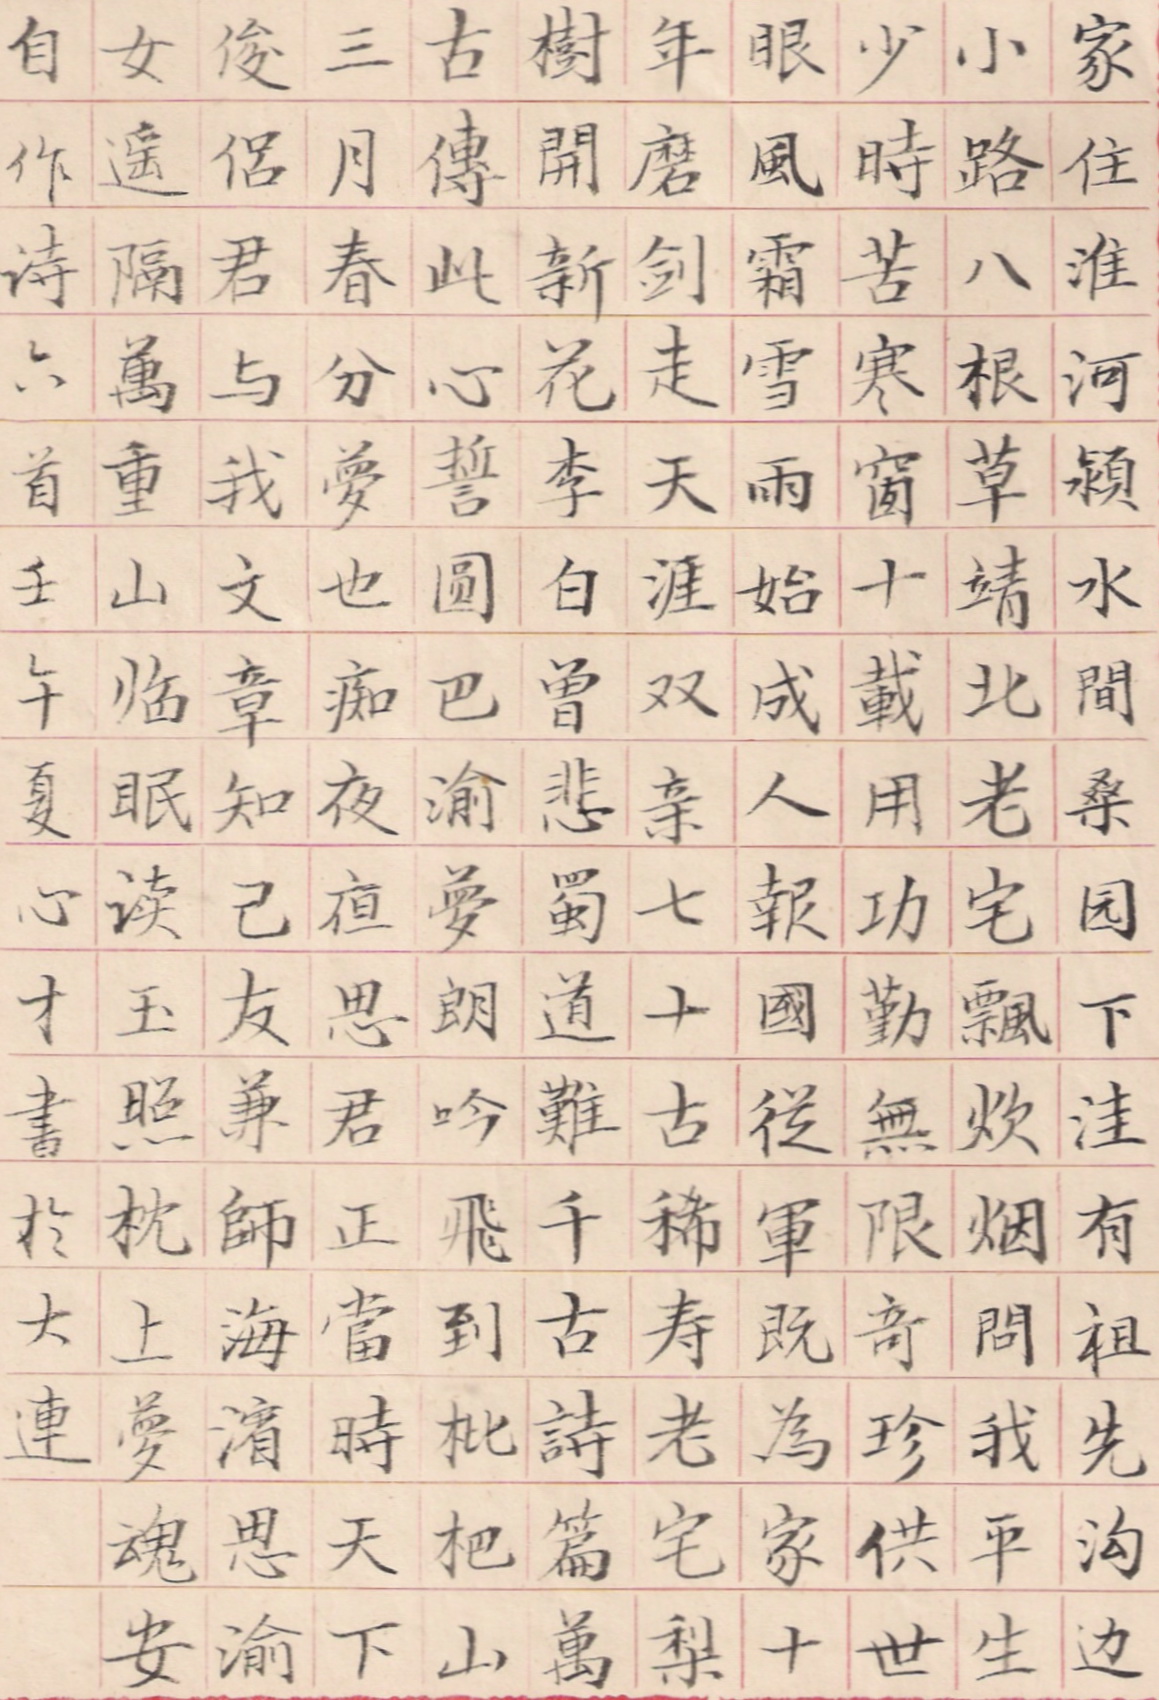 家住淮河潁水間桑园下洼有祖先沟边
小路八根草靖北老宅飄炊烟問我平生
少時苦寒窗十載用功勤無限奇珍供世
眼風霜雪雨始成人報國從軍既為家十
年磨剑走天涯双亲七十古稀寿老宅梨
樹開新花李白曾悲蜀道難千古詩篇萬
古傳此心誓圆巴渝夢朗吟飛到枇杷山
三月春分夢也痴夜夜思君正當時天下
俊侣君与我文章知己友兼師海濱思渝
女遥隔萬重山临眠读玉照枕上夢魂安
自作诗六首壬午夏心才書於大連